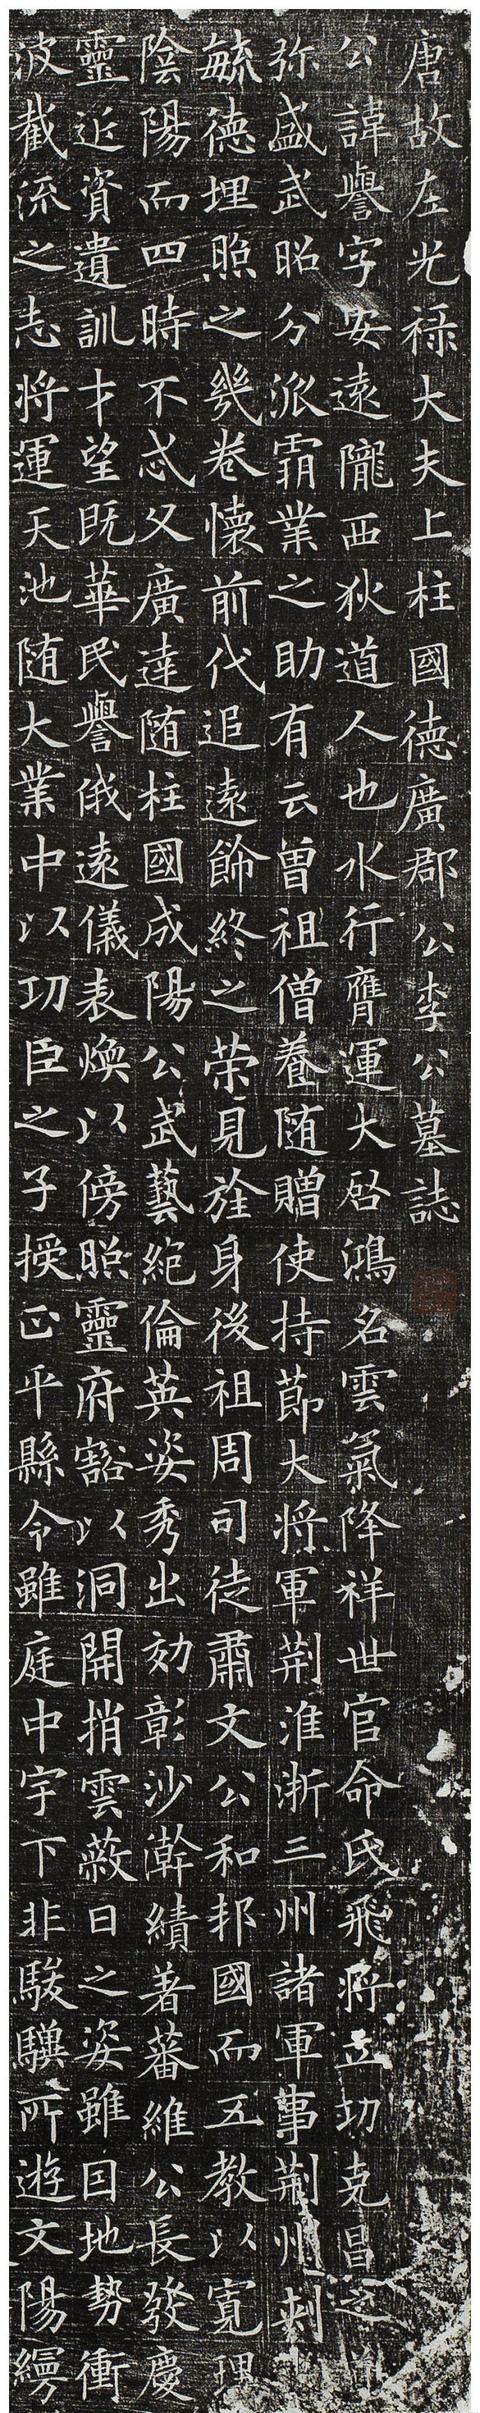 唐故左光祿大夫上柱國德廣郡公李公墓誌
公諱譽字安遠隴西狄道人也水行膺運大啓鴻名雲氣降祥世官命氏飛將立功克昌之
弥盛武昭分派霸業之助有云曾祖僧養随贈使持節大將軍荆淮浙三州諸軍事荆州刺
毓德埋照之幾卷懷前代追遠飾終之榮見旌身後祖周司徒肅文公和邦國而五教以寬理
陰陽而四時不忒父廣達随柱國成陽公武藝絕倫英姿秀出効彰沙漭績著蕃維公長發慶
靈近資遺訓才望既華民譽俄遠儀表煥以傍照靈府豁以洞開捎雲蔽日之姿雖因地勢衝
波截流之志將運天池随大業中以功臣之子授正平縣令雖庭中宇下非駿驥所遊文陽縵